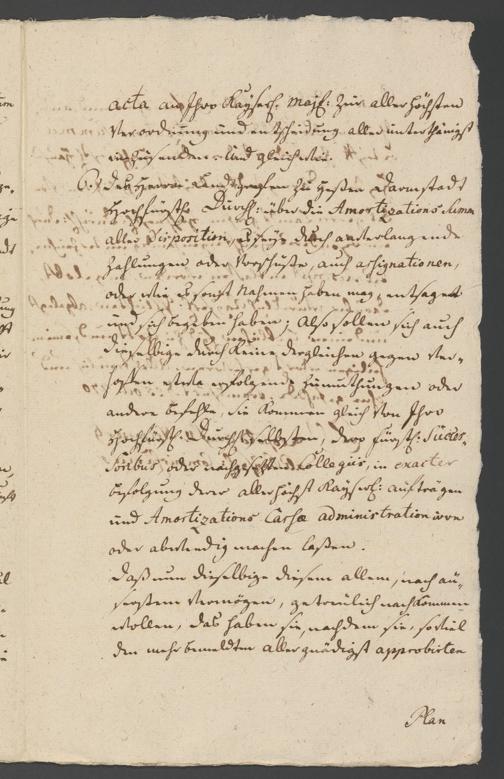 acta an Ihro Kayserl. Majest: Zur allerhöchsten
Verordnung und entscheidung aller unterthänigst
einzusenden. Und gleichwie.
6.) des Herrn Landgrafen zu Heßen Darmstadt
Hochfürstl. Durchl. über die Amortizations Summen
aller Disposition, es seye durch anverlangende
Zahlungen oder Vorschüße, auch assignationen,
oder wie es sonst Nahmen haben mag, entsaget
und sich begeben haben; Also sollen sich auch
dieselbige durch keine dergleichen gegen Ver-
hoffen etwa erfolgende Zumuthungen oder
andere befehle, sie kommen gleich von Ihro
Hochfürstl. Durchl. selbsten, dero fürstl. Succes-
soribus oder nachgesetzten Collegiis, in exacter
befolgung derer allerhöchst Kayserl. aufträgen
und Amortizations Cassæ administration irre
oder abwendig machen laßen.
Daß nun dieselbige diesem allem, nach äu-
serstem Vermögen, getreulich nachkommen
wollen, das haben sie, nachdem sie, soviel
den mehrbemeldten allergnädigst approbirten
Plan